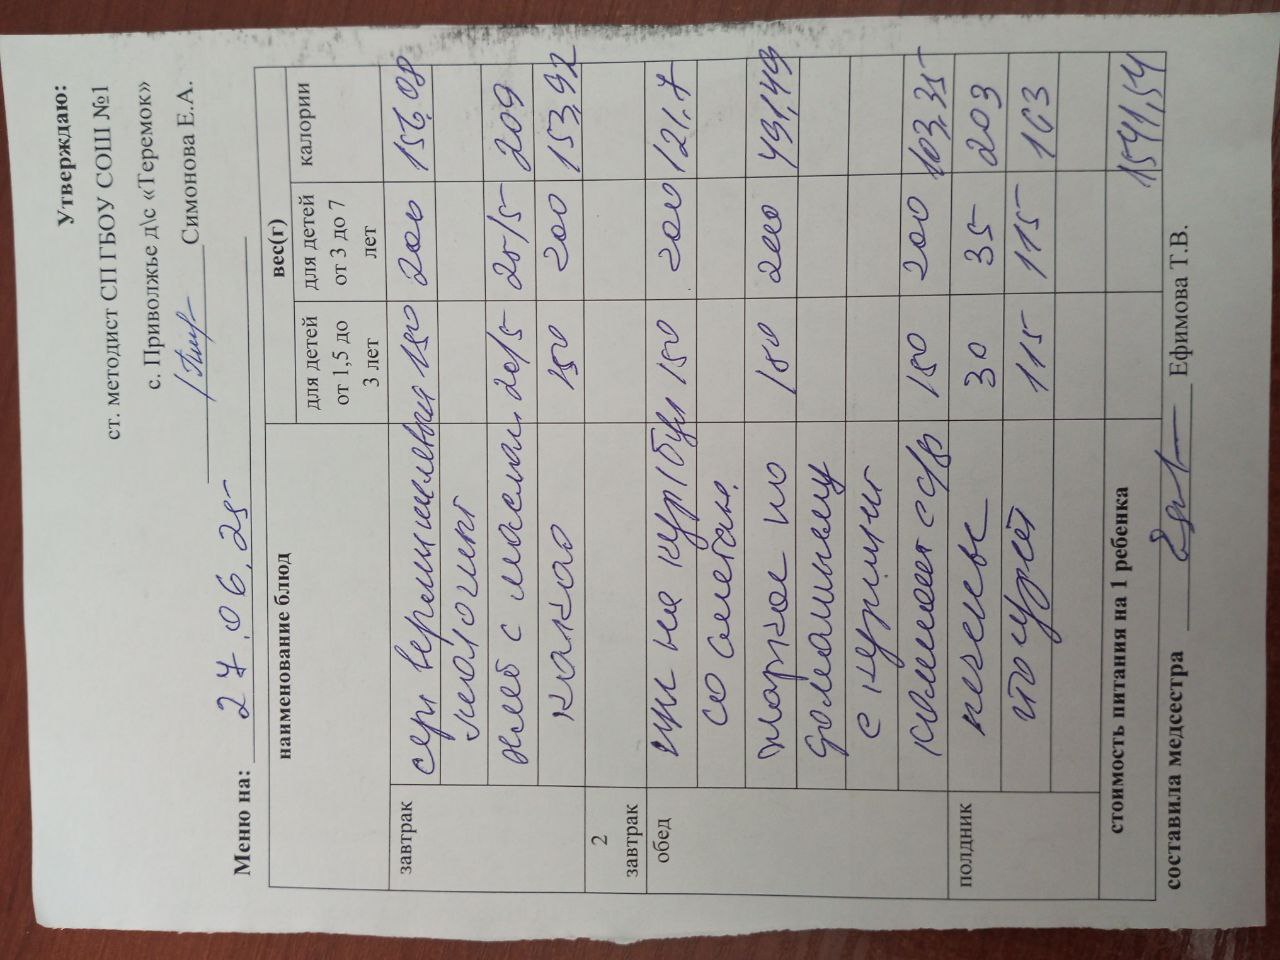 Утверждаю:
ст. методист СП ГБОУ СОШ №1
с. Приволжье д\с «Теремок»
Симонова Е.А.
Меню на: 27.06.25
наименование блюд вес(г) калории
для детей от 1,5 до 3 лет для детей от 3 до 7 лет
завтрак суп вермишелевый 150 200 156,08
хлеб с маслом 20/5 25/5 209
какао 150 200 153,92
2 завтрак
обед щи на кур/бул 150 200 121,7
со сметан.
жаркое по 180 200 491,449
домашнему
с курицей
компот с/ф 150 200 103,35
полдник печенье 30 35 203
йогурт 115 115 103
стоимость питания на 1 ребенка 1541,54
составила медсестра Ефимова Т.В.